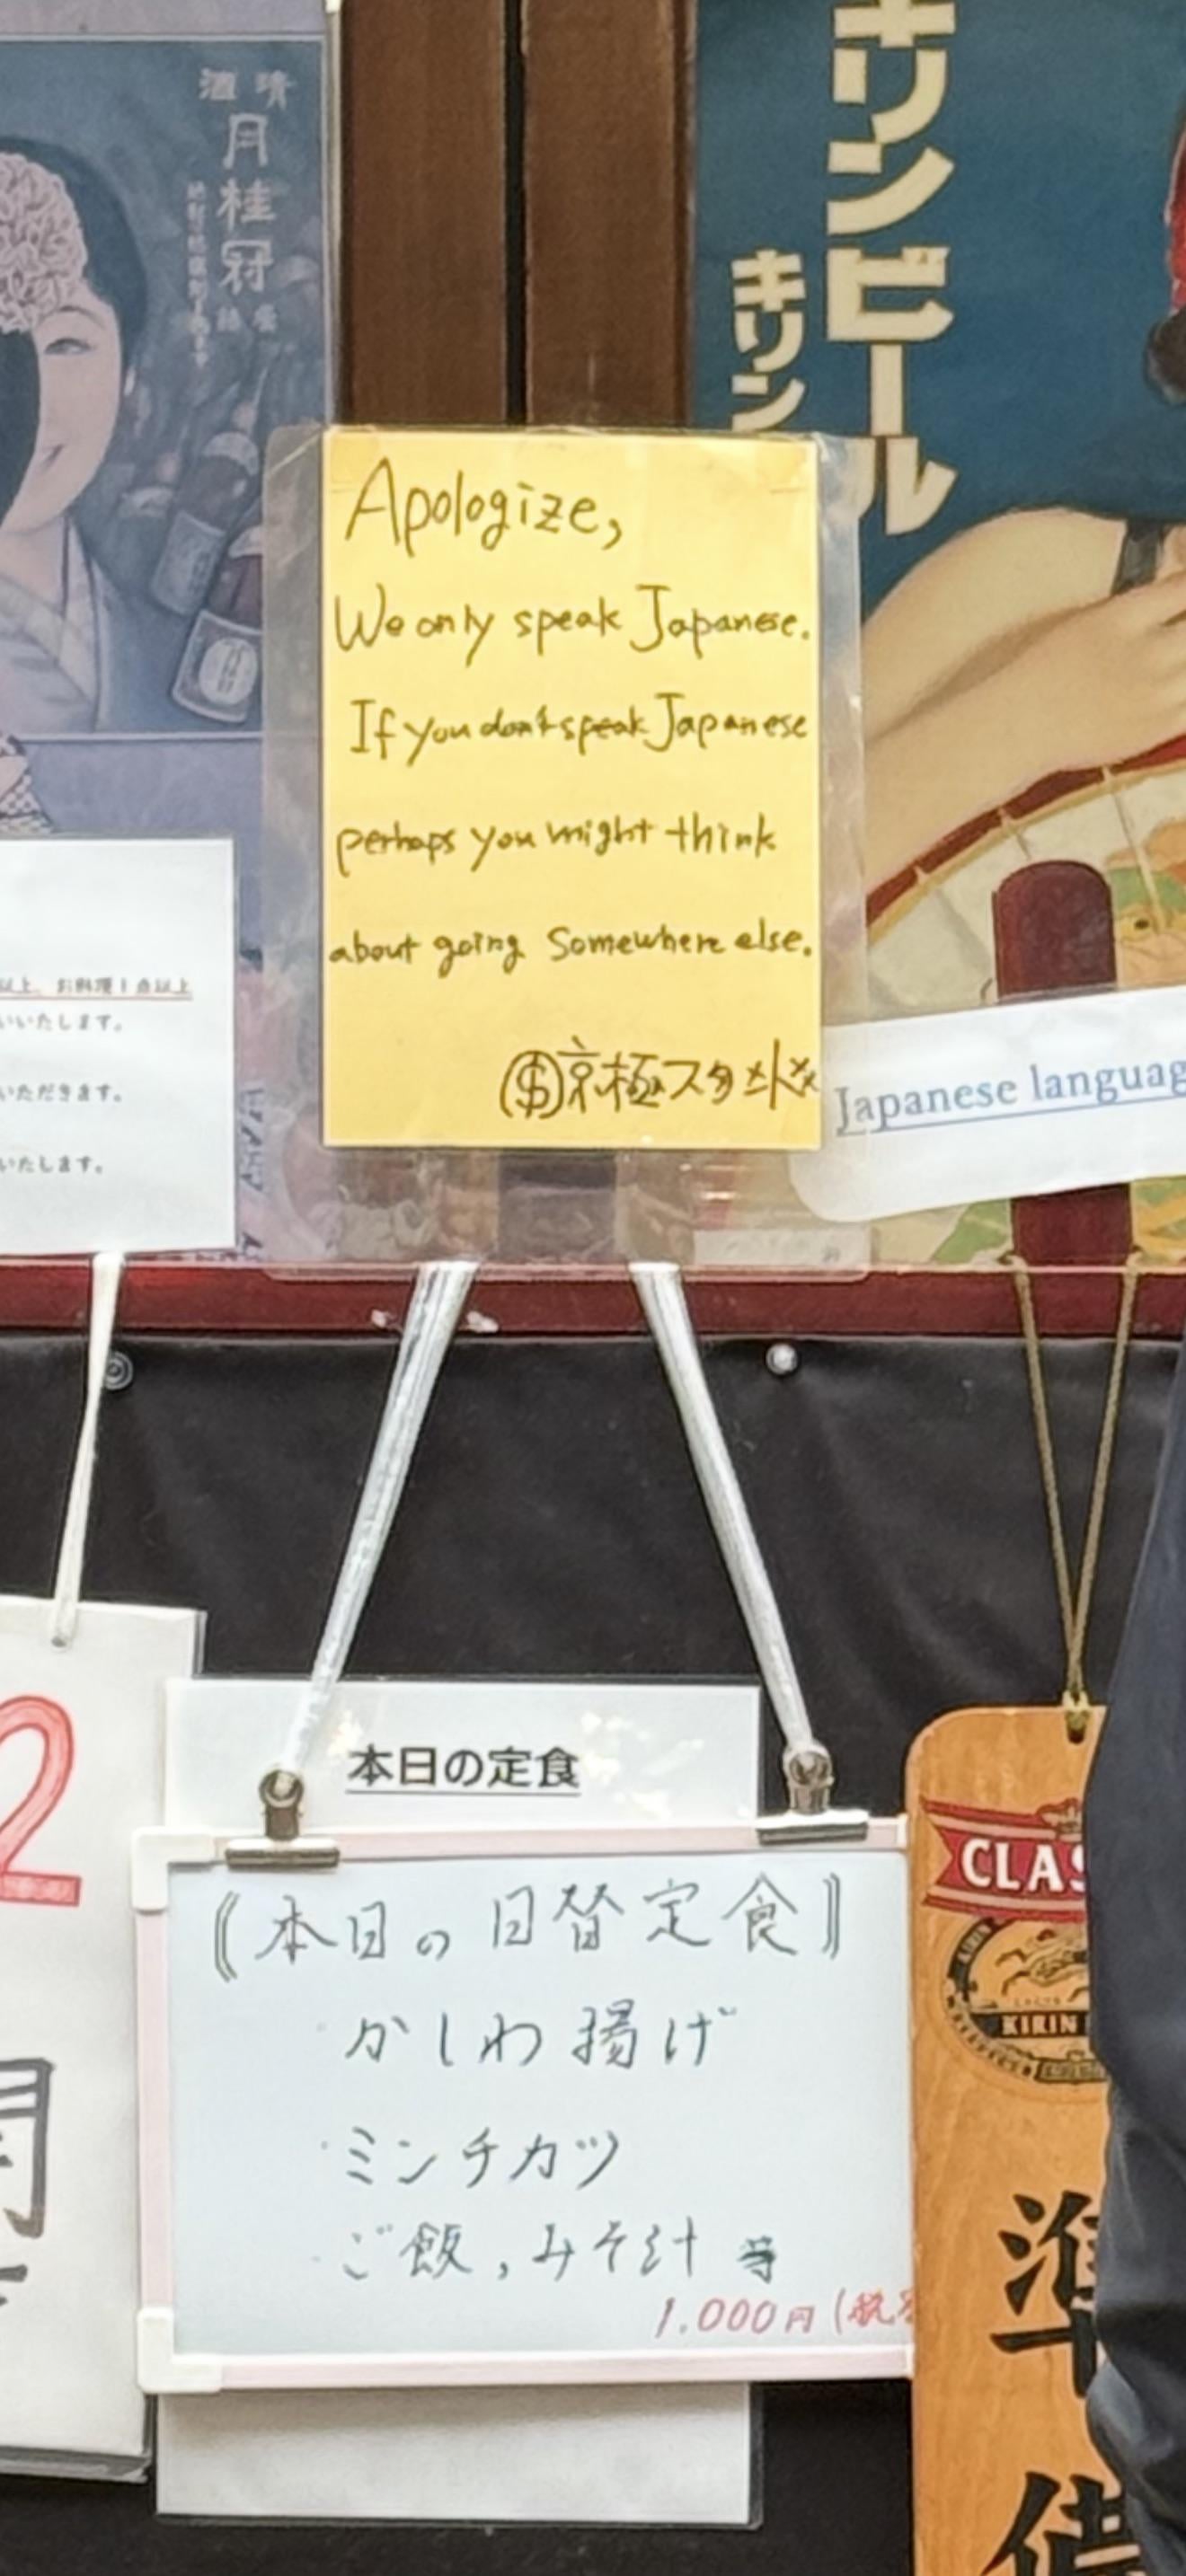 清酒
月桂冠
キリンビール
キリン
Apologize,
We only speak Japanese.
If you don't speak Japanese
perhaps you might think
about going Somewhere else.
京極スタンド
以上、お料理1点以上
いいたします。
いただきます。
いたします。
Japanese languag
2
本日の定食
《本日の日替定食》
・かしわ揚げ
・ミンチカツ
・ご飯,みそ汁 等
1.000円(税
CLAS
KIRIN
準
備